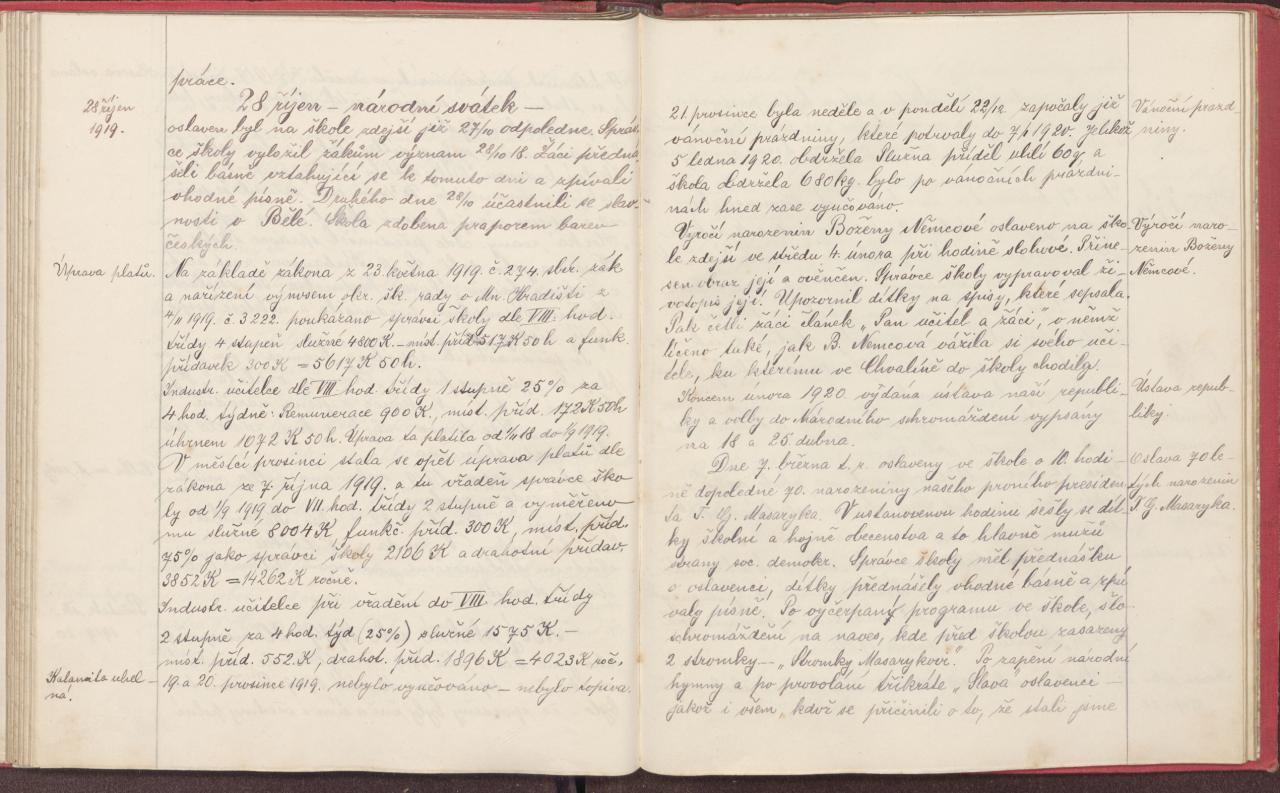 práce.
28 říjen
1919.
28 říjen – národní svátek –
oslaven byl na škole zdejší již 27/10 odpoledne. Správ-
ce školy vyložil žákům význam 28/10 18. Žáci předná-
šeli básně vztahující se k tomuto dni a zpívali
vhodné písně. Druhého dne 28/10 účastnili se slav-
nosti v Bělé. Škola zdobena praporem barev
českých.
Úprava platů.
Na základě zákona z 23. května 1919. č. 274. sbír. zák
a nařízení výnosem okr. šk. rady v Mn. Hradišti z
4/11 1919. č. 3222. poukázano správci školy dle VIII. hod.
třídy 4 stupeň služné 4800 K. – míst. příd. 517 K 50 h a funk.
přídavek 300 K = 5617 K 50 h.
Industr. učitelce dle VIII hod. třídy 1 stupně 25% za
4 hod. týdně: Remunerace 900 K, míst. příd. 172 K 50 h
úhrnem 1072 K 50 h. Úprava ta platila od 1/11 18 do 1/9 1919.
V měsíci prosinci stala se opět úprava platů dle
zákona ze 7. října 1919. a tu vřaděn správce ško-
ly od 1/9 1919 do VII. hod. třídy 2 stupně a vyměřeno
mu služné 8004 K, funkč. příd. 300 K, míst. příd.
75% jako správci školy 2106 K a drahotní přídav.
3852 K = 14262 K ročně.
Industr. učitelce při vřadění do VIII hod. třídy
2 stupně za 4 hod. týd (25%) služné 1575 K. –
míst. příd. 552 K, drahot. příd. 1896 K = 4023 K roč.
Kalamita uhel-
ná.
19. a 20. prosince 1919. nebylo vyučováno – nebylo topiva.
21. prosince byla neděle a v pondělí 22/12. započaly již
Vánoční prázd-
niny.
vánoční prázdniny, které potrvaly do 7/1 1920. Jelikož
5 ledna 1920. obdržela Služna příděl uhlí 60 q a
škola obdržela 680 kg. bylo po vánočních prázdni-
nách hned zase vyučováno.
Výročí narozenin Boženy Němcové oslaveno na ško-
Výročí naro-
zenin Boženy
Němcové.
le zdejší ve středu 4. února při hodině slohové. Přine-
sen obraz její a ověnčen. Správce školy vypravoval ži-
votopis její. Upozornil dítky na spisy, které sepsala.
Pak četli žáci článek „Pan učitel a žáci", v němž
líčeno také, jak B. Němcová vážila si svého uči-
tele, ku kterému ve Chvalíně do školy chodila.
Koncem února 1920. vydána ústava naší republi-
Ústava repub-
liky.
ky a volby do Národního schromáždění vypsány
na 18 a 25. dubna.
Dne 7. března t. r. oslaveny ve škole o 10. hodi-
Oslava 70 le-
tých narozenin
T. G. Masaryka.
ně dopoledné 70. narozeniny našeho prvního presiden-
ta T. G. Masaryka. V ustanovenou hodinu sešly se dít-
ky školní a hojně obecenstva a to hlavně mužů
strany soc. demokr. Správce školy měl přednášku
o oslavenci, dítky přednášely vhodné básně a zpí-
valy písně. Po vyčerpaný programu ve škole, šlo
schromáždění na naves, kde před školou zasazeny
2 stromky – „Stromky Masarykovy". Po zapění národní
hymny a po provolání třikráte „Sláva" oslavenci –
jakož i všem, kdož se přičinili o to, že stali jsme